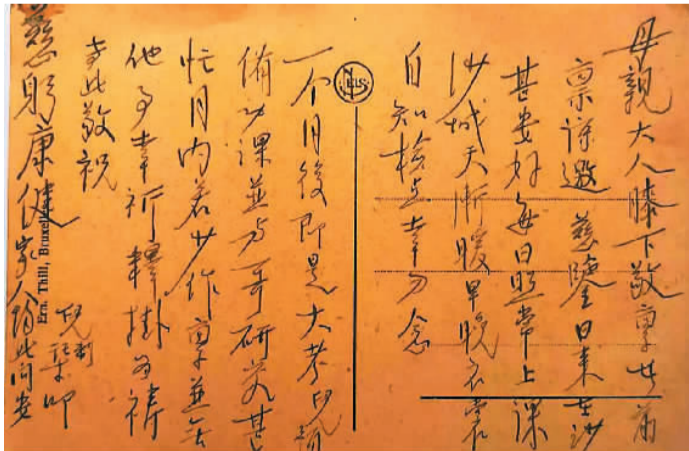 母親大人膝下敬稟者前
稟諒邀 慈鑒日來在沙
甚安好每日照常上課
沙城天漸暖早晚衣裳
自知檢点幸勿念
一个月後即是大考兒預
備功課並方哥研究甚
忙月内若少作稟並無
他事幸祈釋掛為禱
耑此敬祝
慈躬康健家人均此问安
兒 稟叩
NELS
Ern. Thill, Bruxelles